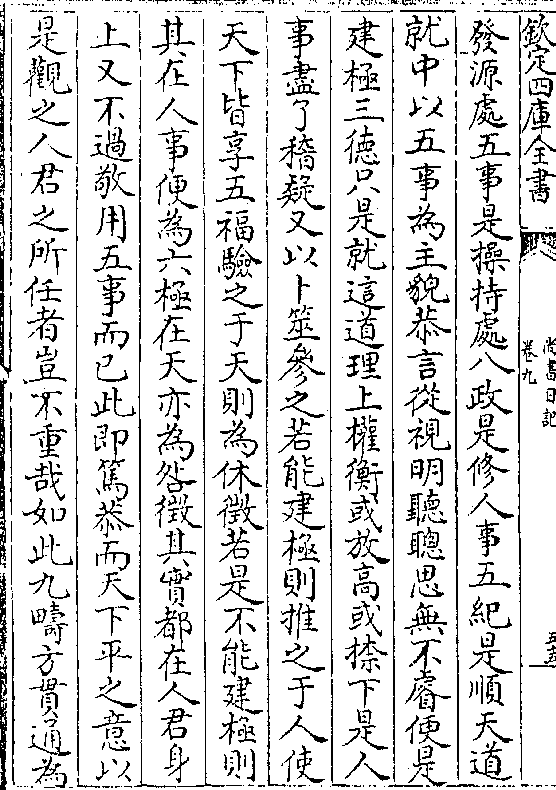 欽定四庫全書
尚書日記
卷九
五五
發源處五事是操持處八政是修人事五紀是順天道
就中以五事為主貌恭言從視明聽聰思無不睿便是
建極三德只是就這道理上權衡或放高或捺下是人
事盡了稽疑又以卜筮參之若能建極則推之于人使
天下皆享五福驗之于天則為休徵若是不能建極則
其在人事便為六極在天亦為咎徵其實都在人君身
上又不過敬用五事而已此即篤恭而天下平之意以
是觀之人君之所任者豈不重哉如此九疇方貫通為